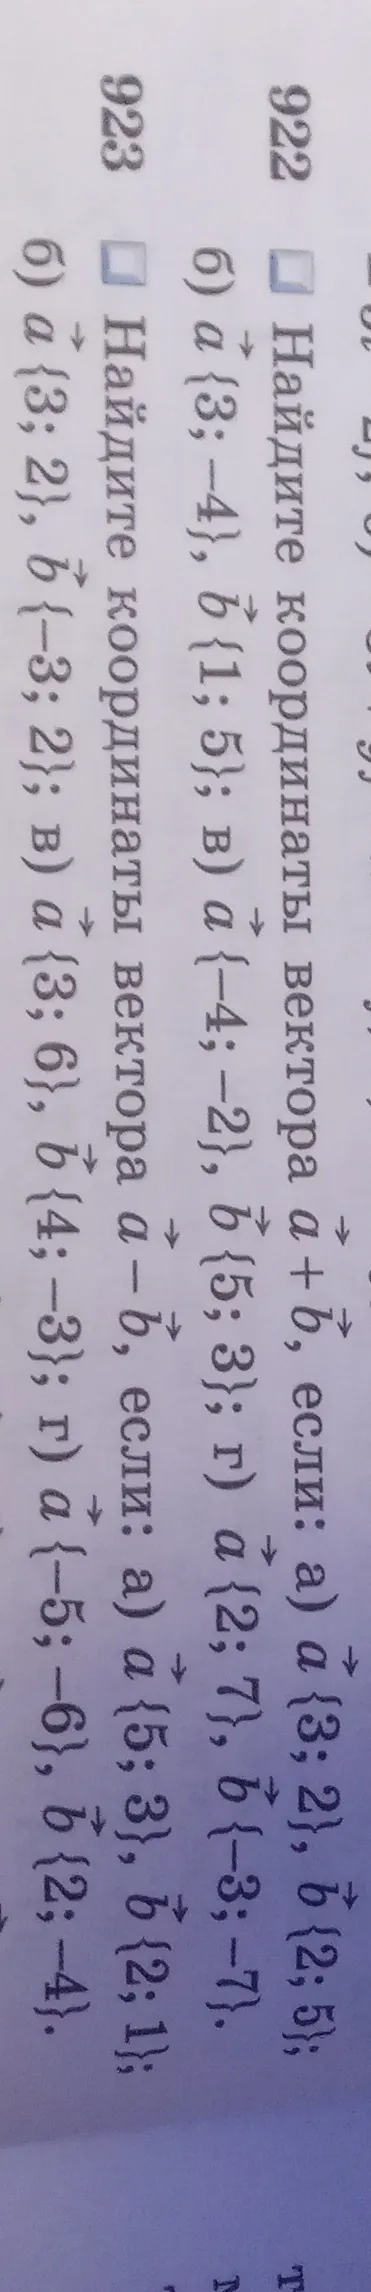 922 Найдите координаты вектора a⃗ + b⃗, если: а) a⃗ {3; 2}, b⃗ {2; 5};
б) a⃗ {3; −4}, b⃗ {1; 5}; в) a⃗ {−4; −2}, b⃗ {5; 3}; г) a⃗ {2; 7}, b⃗ {−3; −7}.
923 Найдите координаты вектора a⃗ − b⃗, если: а) a⃗ {5; 3}, b⃗ {2; 1};
б) a⃗ {3; 2}, b⃗ {−3; 2}; в) a⃗ {3; 6}, b⃗ {4; −3}; г) a⃗ {−5; −6}, b⃗ {2; −4}.